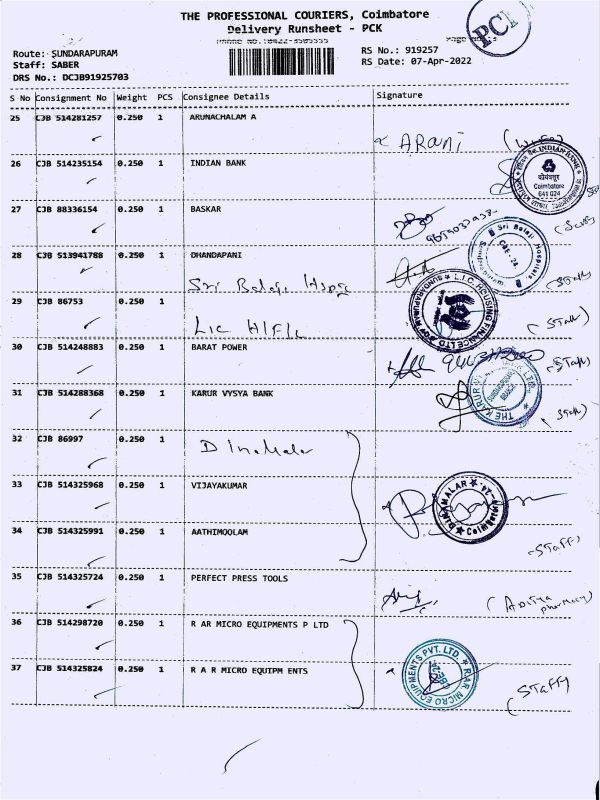 THE PROFESSIONAL COURIERS, Coimbatore
Delivery Runsheet - PCK
PCK
Route: SUNDARAPURAM
RS No.: 919257
Staff: SABER
RS Date: 07-Apr-2022
DRS No.: DCJB91925703
S No Consignment No Weight PCS Consignee Details Signature
25 CJB 514281257 0.250 1 ARUNACHALAM A
26 CJB 514235154 0.250 1 INDIAN BANK
INDIAN BANK
Coimbatore
641 024
27 CJB 88336154 0.250 1 BASKAR
28 CJB 513941788 0.250 1 DHANDAPANI
Sri Balaji Hospitals
CBE-24
29 CJB 86753 0.250 1
L.I.C. HOUSING FINANCE LTD
Lic H/F/L
(Staff)
30 CJB 514248883 0.250 1 BARAT POWER
(Staff)
31 CJB 514288368 0.250 1 KARUR VYSYA BANK
32 CJB 86997 0.250 1
33 CJB 514325968 0.250 1 VIJAYAKUMAR
Coimbatore
34 CJB 514325991 0.250 1 AATHIMOOLAM
(Staff)
35 CJB 514325724 0.250 1 PERFECT PRESS TOOLS
(Aditya
pharmacy)
36 CJB 514298720 0.250 1 R AR MICRO EQUIPMENTS P LTD
37 CJB 514325824 0.250 1 R A R MICRO EQUIPM ENTS
RAR MICRO EQUIPMENTS PVT. LTD.